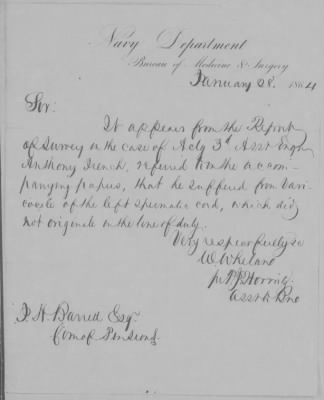 Navy Department
Bureau of Medicine & Surgery
January 28. 1864
Sir:
It appears from the Report
of Survey in the case of Actg 3d Asst Engr
Anthony French, referred to in the accom-
panying papers, that he suffered from vari-
cocele of the left spermatic cord, which did
not originate in the line of duty.
Very respectfully &c
W. Whelan
pr P. J. Horwitz
Asst to Bur
J. H. Barrett Esqr
Com of Pensions